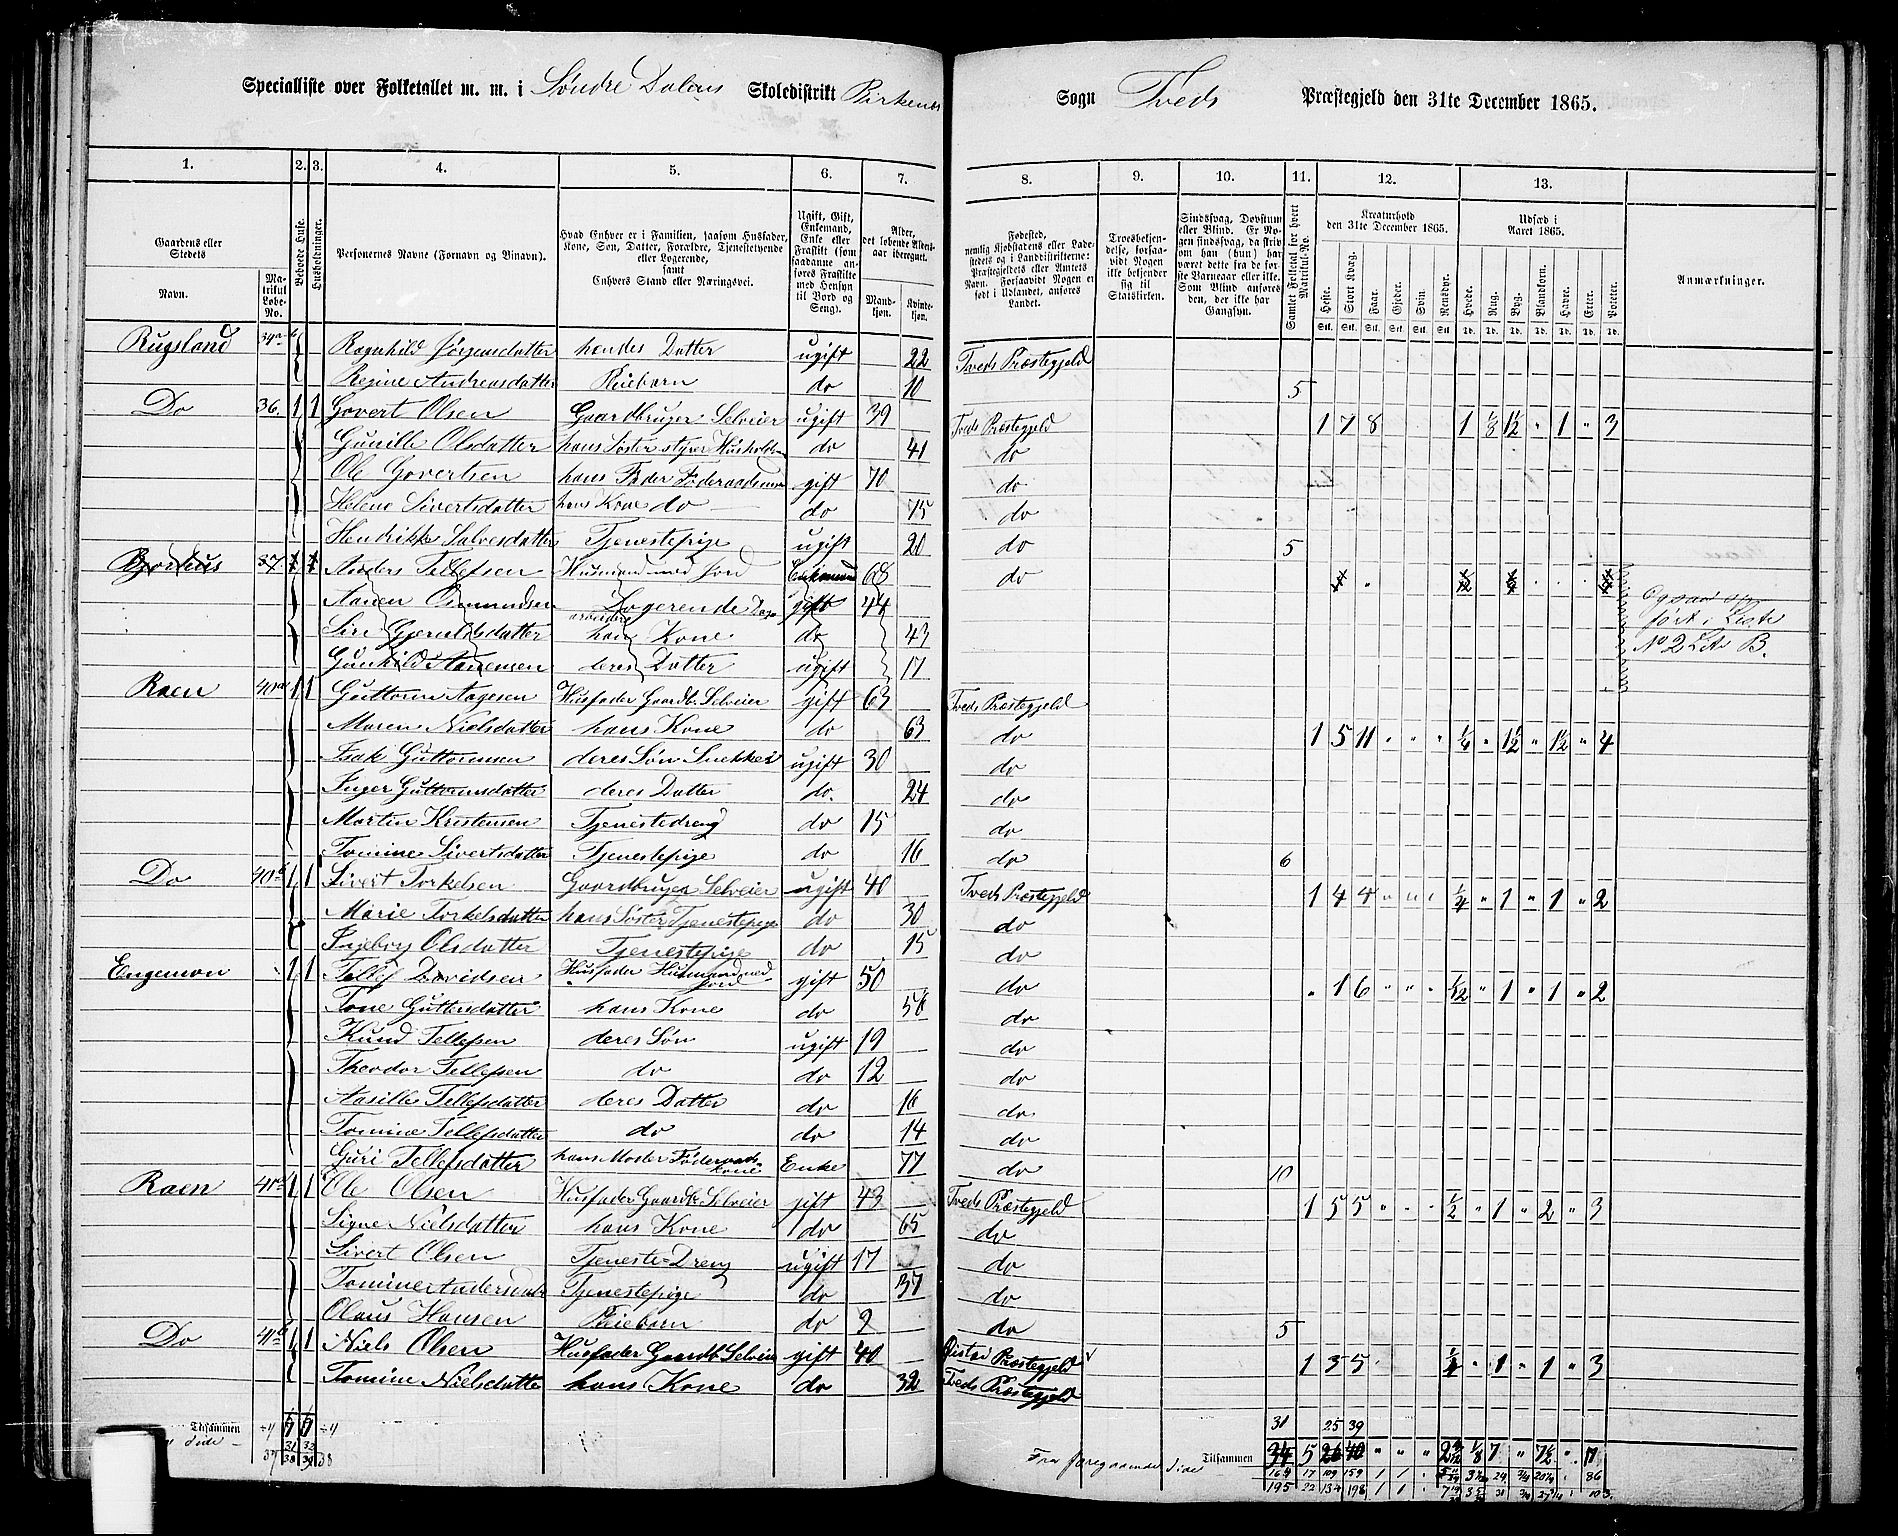 Specialliste over Folketallet m. m. i Søndre Dalens Skoledistrikt Birkenes Sogn Tveds Præstegjeld den 31te December 1865.
1. 2. 3. 4. 5. 6. 7. 8. 9. 10. 11. 12. 13.
Gaardens eller Stedets Navn. Matrikul Løbe-No. Beboede Huse. Husholdninger. Personernes Navne (Fornavn og Tilnavn).
Hvad Enhver er i Familien, saasom Husfader, Kone, Søn, Datter, Forældre, Tjenestetyende eller Logerende, samt Enhvers Stand eller Næringsvei.
Ugift, Gift, Enkemand, Enke eller Fraskilt (som saadanne anføres Fraskilte med Hensyn til Bord og Seng).
Alder, det løbende Aldersaar iberegnet. Mandkjøn. Kvindekjøn.
Fødested, nemlig Kjøbstadens eller Ladestedets og i Landdistrikterne: Præstegjeldets eller Amtets Navn. Forsaavidt Nogen er født i Udlandet, anføres Landet.
Troesbekjendelse, forsaavidt Nogen ikke bekjender sig til Statskirken.
Sindssvag, Døvstum eller Blind. Er Nogen sindssvag, da skrives han (hun) har været dette fra de første Barneaar eller ikke. Som Blind anføres den, der ikke har Gangsyn.
Samlet Folketal for hvert Matrikul-No.
Kreaturhold den 31te December 1865. Heste. Stort Kvæg. Faar. Gjeder. Svin. Rensdyr.
Udsæd i Aaret 1865. Hvede. Rug. Byg. Blandkorn. Havre. Erter. Poteter.
Anmærkninger.
Rugsland 34 Ragnhild Jørgensdatter handes Datter ugift 22 Tveds Præstegjeld
Regine Andreasdatter Pleiebarn do 10 5
Do 36 1 1 Govert Olsen Gaardbruger Selveier ugift 39 Tveds Præstegjeld 1 7 8 1 1/8 1½ " 1 " 3
Gunille Olsdatter hans Søster styrer Husholdn do 41 do
Ole Govertsen hans Fader Føderaadsman gift 70 do
Helene Sivertsdatter hans Kone do do 75 do
Hendrikke Salvesdatter Tjenestepige ugift 20 do 5
37 Anders Tellefsen Husmand med Jord Enkemand 68 do
Aanen Osmundsen Logerende gift 44
Siri Gjeruldsdatter hans Kone do 43
Gunhild Aanensen deres Datter ugift 17
Ogsaa opført i Liste No 2 Litr B.
Raen 40a 1 1 Guttorm Aagesen Husfader Gaardb. Selveier gift 63 Tveds Præstegjeld
Maren Nielsdatter hans Kone do 63 do 1 5 11 " " " " 1½ " 1½ " 4
Isak Guttormsen deres Søn Snekker ugift 30 do
Inger Guttormsdatter deres Datter do 24 do
Martin Kristensen Tjenestedreng do 15 do
Tomine Sivertsdatter Tjenestepige do 16 do 6
Do 40b 1 1 Sivert Torkelsen Gaardbruger Selveier ugift 40 Tveds Præstegjeld 1 4 4 " " " ¼ " 1 " 1 " 2
Marie Torkelsdatter hans Søster Tjenestepige do 30 do
Ingeborg Olsdatter Tjenestepige do 15 do
Engemon 1 1 Tellef Davidsen Husfader Husmand med Jord gift 50 do " 1 6 " " " 1/12 " 1 " 1 " 2
Tone Guttormsdatter hans Kone do 56 do
Knud Tellefsen deres Søn ugift 19 do
Theodor Tellefsen do do 12 do
Aasille Tellefsdatter deres Datter do 16 do
Tomine Tellefsdatter do do 14 do
Guri Tellefsdatter hans Moster Føderaadskone Enke 77 do 10
Raen 41a 1 1 Ole Olsen Husfader Gaardb Selveier gift 43 Tveds Præstegjeld 1 5 5 " " " ½ " 1 " 2 " 3
Signe Nielsdatter hans Kone do 65 do
Sivert Olsen Tjeneste-Dreng ugift 17 do
Tomine Andersdatr Tjenestepige do 37 do
Olaus Hansen Pleiebarn do 2 do 5
Do 41b 1 1 Niels Olsen Husfader Gaardb Selveier gift 40 Øistad Præstegjeld 1 3 5 ¼ " 1 " 1 " 3
Tomine Nielsdatter hans Kone do 32 Tveds Præstegjeld
Tilsammen Side 31 25 39
Fra foregaaende Side Tilsammen 34 5 26 40
17 109 159 1 1 86
195 22 134 198 1 1 103